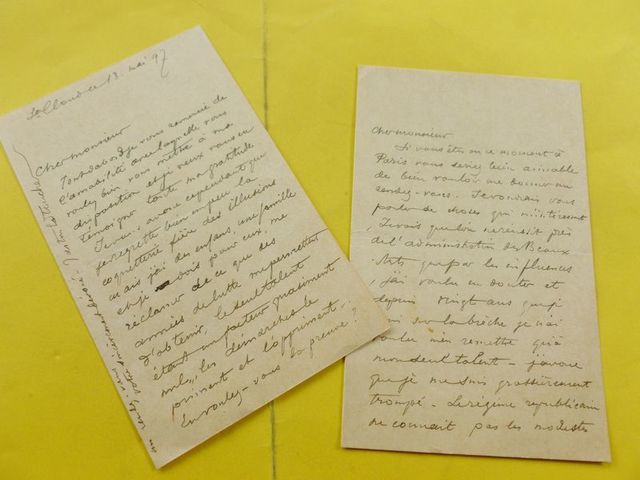 St Cloud ce 13. mai 97
Cher monsieur
Tout d'abord je vous remercie de
l'amabilité avec laquelle vous
voulez bien vous mettre à ma
disposition et je veux vous en
témoigner toute ma gratitude
Je vous avoue cependant que
je regrette bien un peu la
coquetterie fière des illusions
mais j'ai des enfants, une famille
et je dois pour eux, me
réclamer de ce que des
années de lutte me permettent
d'obtenir, le seul talent
étant un facteur quasiment
nul, les démarches le
priment et l'oppriment.
En voulez-vous la preuve ?
Cher monsieur
Si vous êtes en ce moment à
Paris vous seriez bien aimable
de bien vouloir me donner un
rendez-vous. Je voudrais vous
parler de choses qui m'intéressent
Je sais que l'on ne réussit près
de l'administration des Beaux
Arts que par les influences
, j'ai voulu en douter et
depuis vingt ans que je
suis sur la brèche je n'ai
voulu m'en remettre qu'à
mon seul talent - j'avoue
que je me suis grossièrement
trompé - Le régime républicain
ne connait pas les modestes